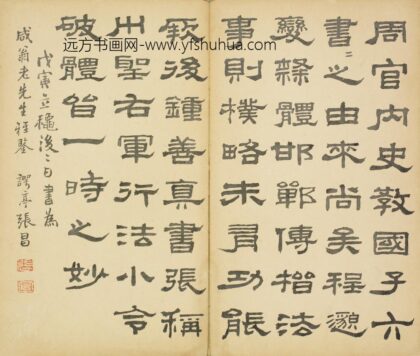 远方书画网-www.yfshuhua.com
周官内史教國子六
書〻之由來尚矣程邈
變隸體邯鄲傳楷法
事則樸略未有功能
厥後鍾善真書張稱
艸聖右軍行法小令
破體皆一時之妙
戊寅立穐後日書為
咸翁老先生鑒 亭張昌